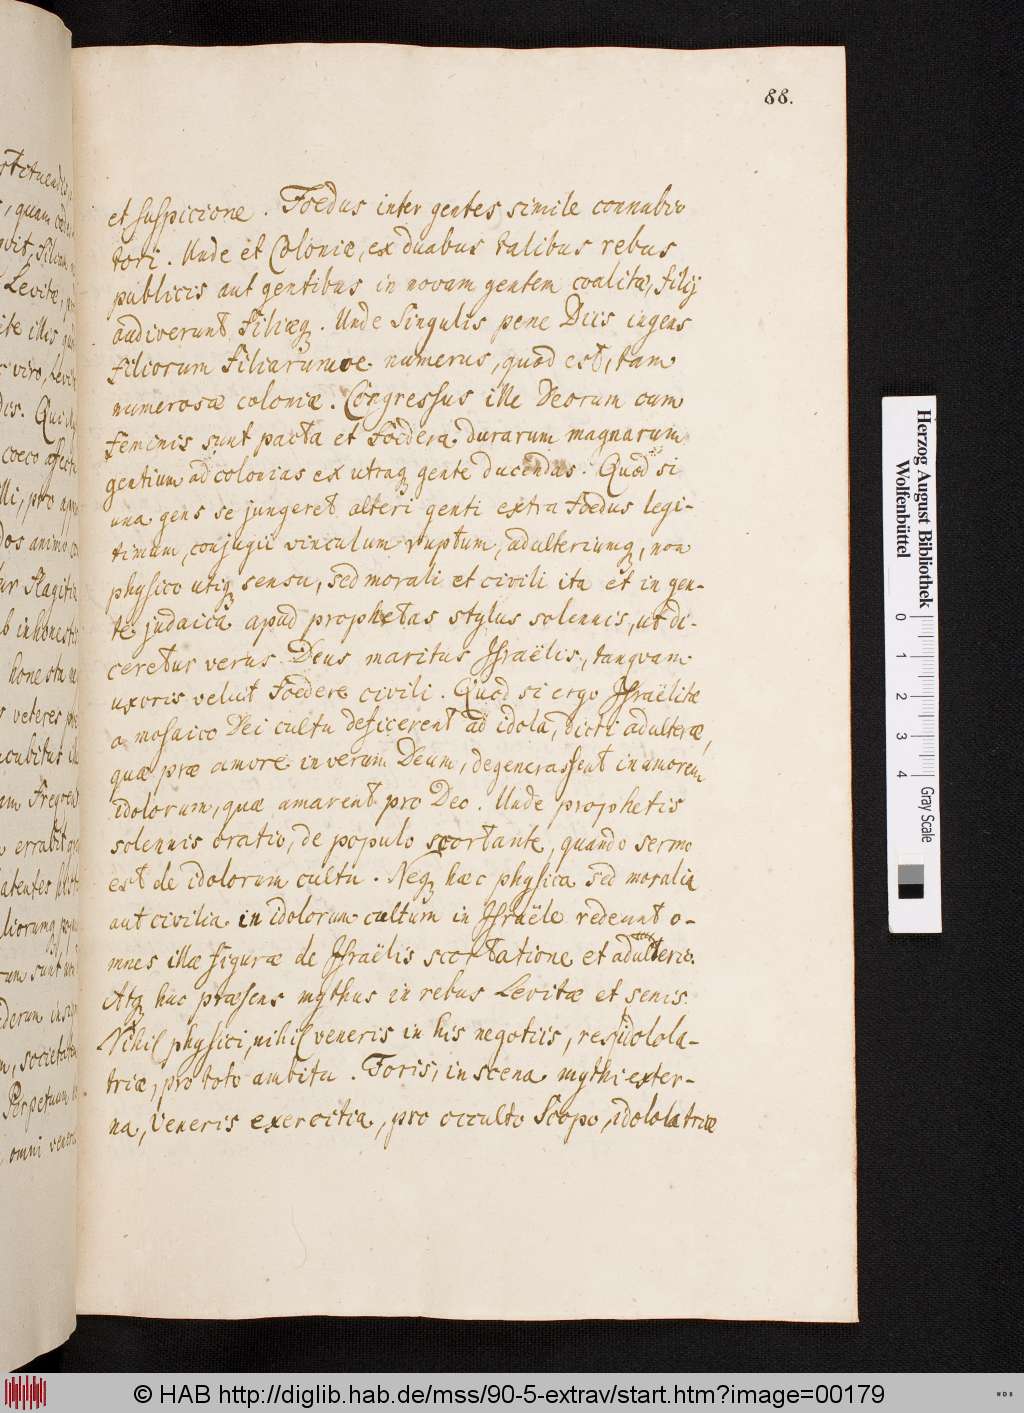 88.
et suspicione. Foedus inter gentes simile connubio
tori. Unde et Coloniæ, ex duabus talibus rebus
publicis aut gentibus in novam gentem coalitæ, filij
audiverunt filiæq. Unde singulis pene Diis ingens
filiorum filiarumve numerus, quod est, tam
numerosæ coloniæ. Congressus ille Deorum cum
feminis sunt pacta et foedera durarum magnarum
gentium ad colonias ex utraq gente ducendas. Quod si
una gens se jungeret alteri genti extra foedus legi-
timum, conjugii vinculum ruptum, adulteriumq, non
physico utiq sensu, sed morali et civili ita et in gen-
te judaica apud prophetas stylus solennis, ut di-
ceretur verus Deus maritus Israëlis, tanquam
uxoris velut foedere civili. Quod si ergo Israëlitæ
a mosaico Dei cultu deficerent ad idola, dicti adulteræ,
quæ præ amore in verum Deum, degenerassent in amorem
idolorum, quæ amarent pro Deo. Unde prophetis
solennis oratio, de populo scortante, quando sermo
est de idolorum cultu. Neq hæc physica sed moralia
aut civilia in idolorum cultum in Israële redeunt o-
mnes illæ figuræ de Israëlis scortatione et adulterio.
Atq huc præsens mythus in rebus Levitæ et senis.
Nihil physici, nihil veneris in his negotiis, res idolola-
triæ, pro toto ambitu. Foris, in scena mythi exter-
na, Veneris exercitia, pro occulto scopo, idololatriæ
Herzog August Bibliothek
Wolfenbüttel
0 1 2 3 4 Gray Scale
© HAB http://diglib.hab.de/mss/90-5-extrav/start.htm?image=00179